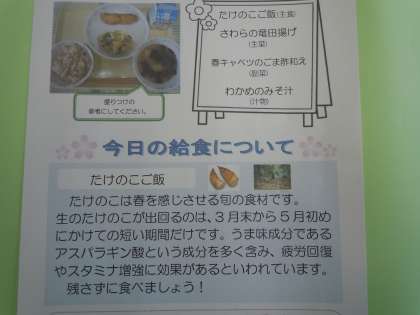 たけのこご飯(主食)
さわらの竜田揚げ
(主菜)
春キャベツのごま酢和え
(副菜)
わかめのみそ汁
(汁物)
盛りつけの
参考にしてください。
今日の給食について
たけのこご飯
たけのこは春を感じさせる旬の食材です。
生のたけのこが出回るのは、3月末から5月初め
にかけての短い期間だけです。うま味成分である
アスパラギン酸という成分を多く含み、疲労回復
やスタミナ増強に効果があるといわれています。
残さずに食べましょう!